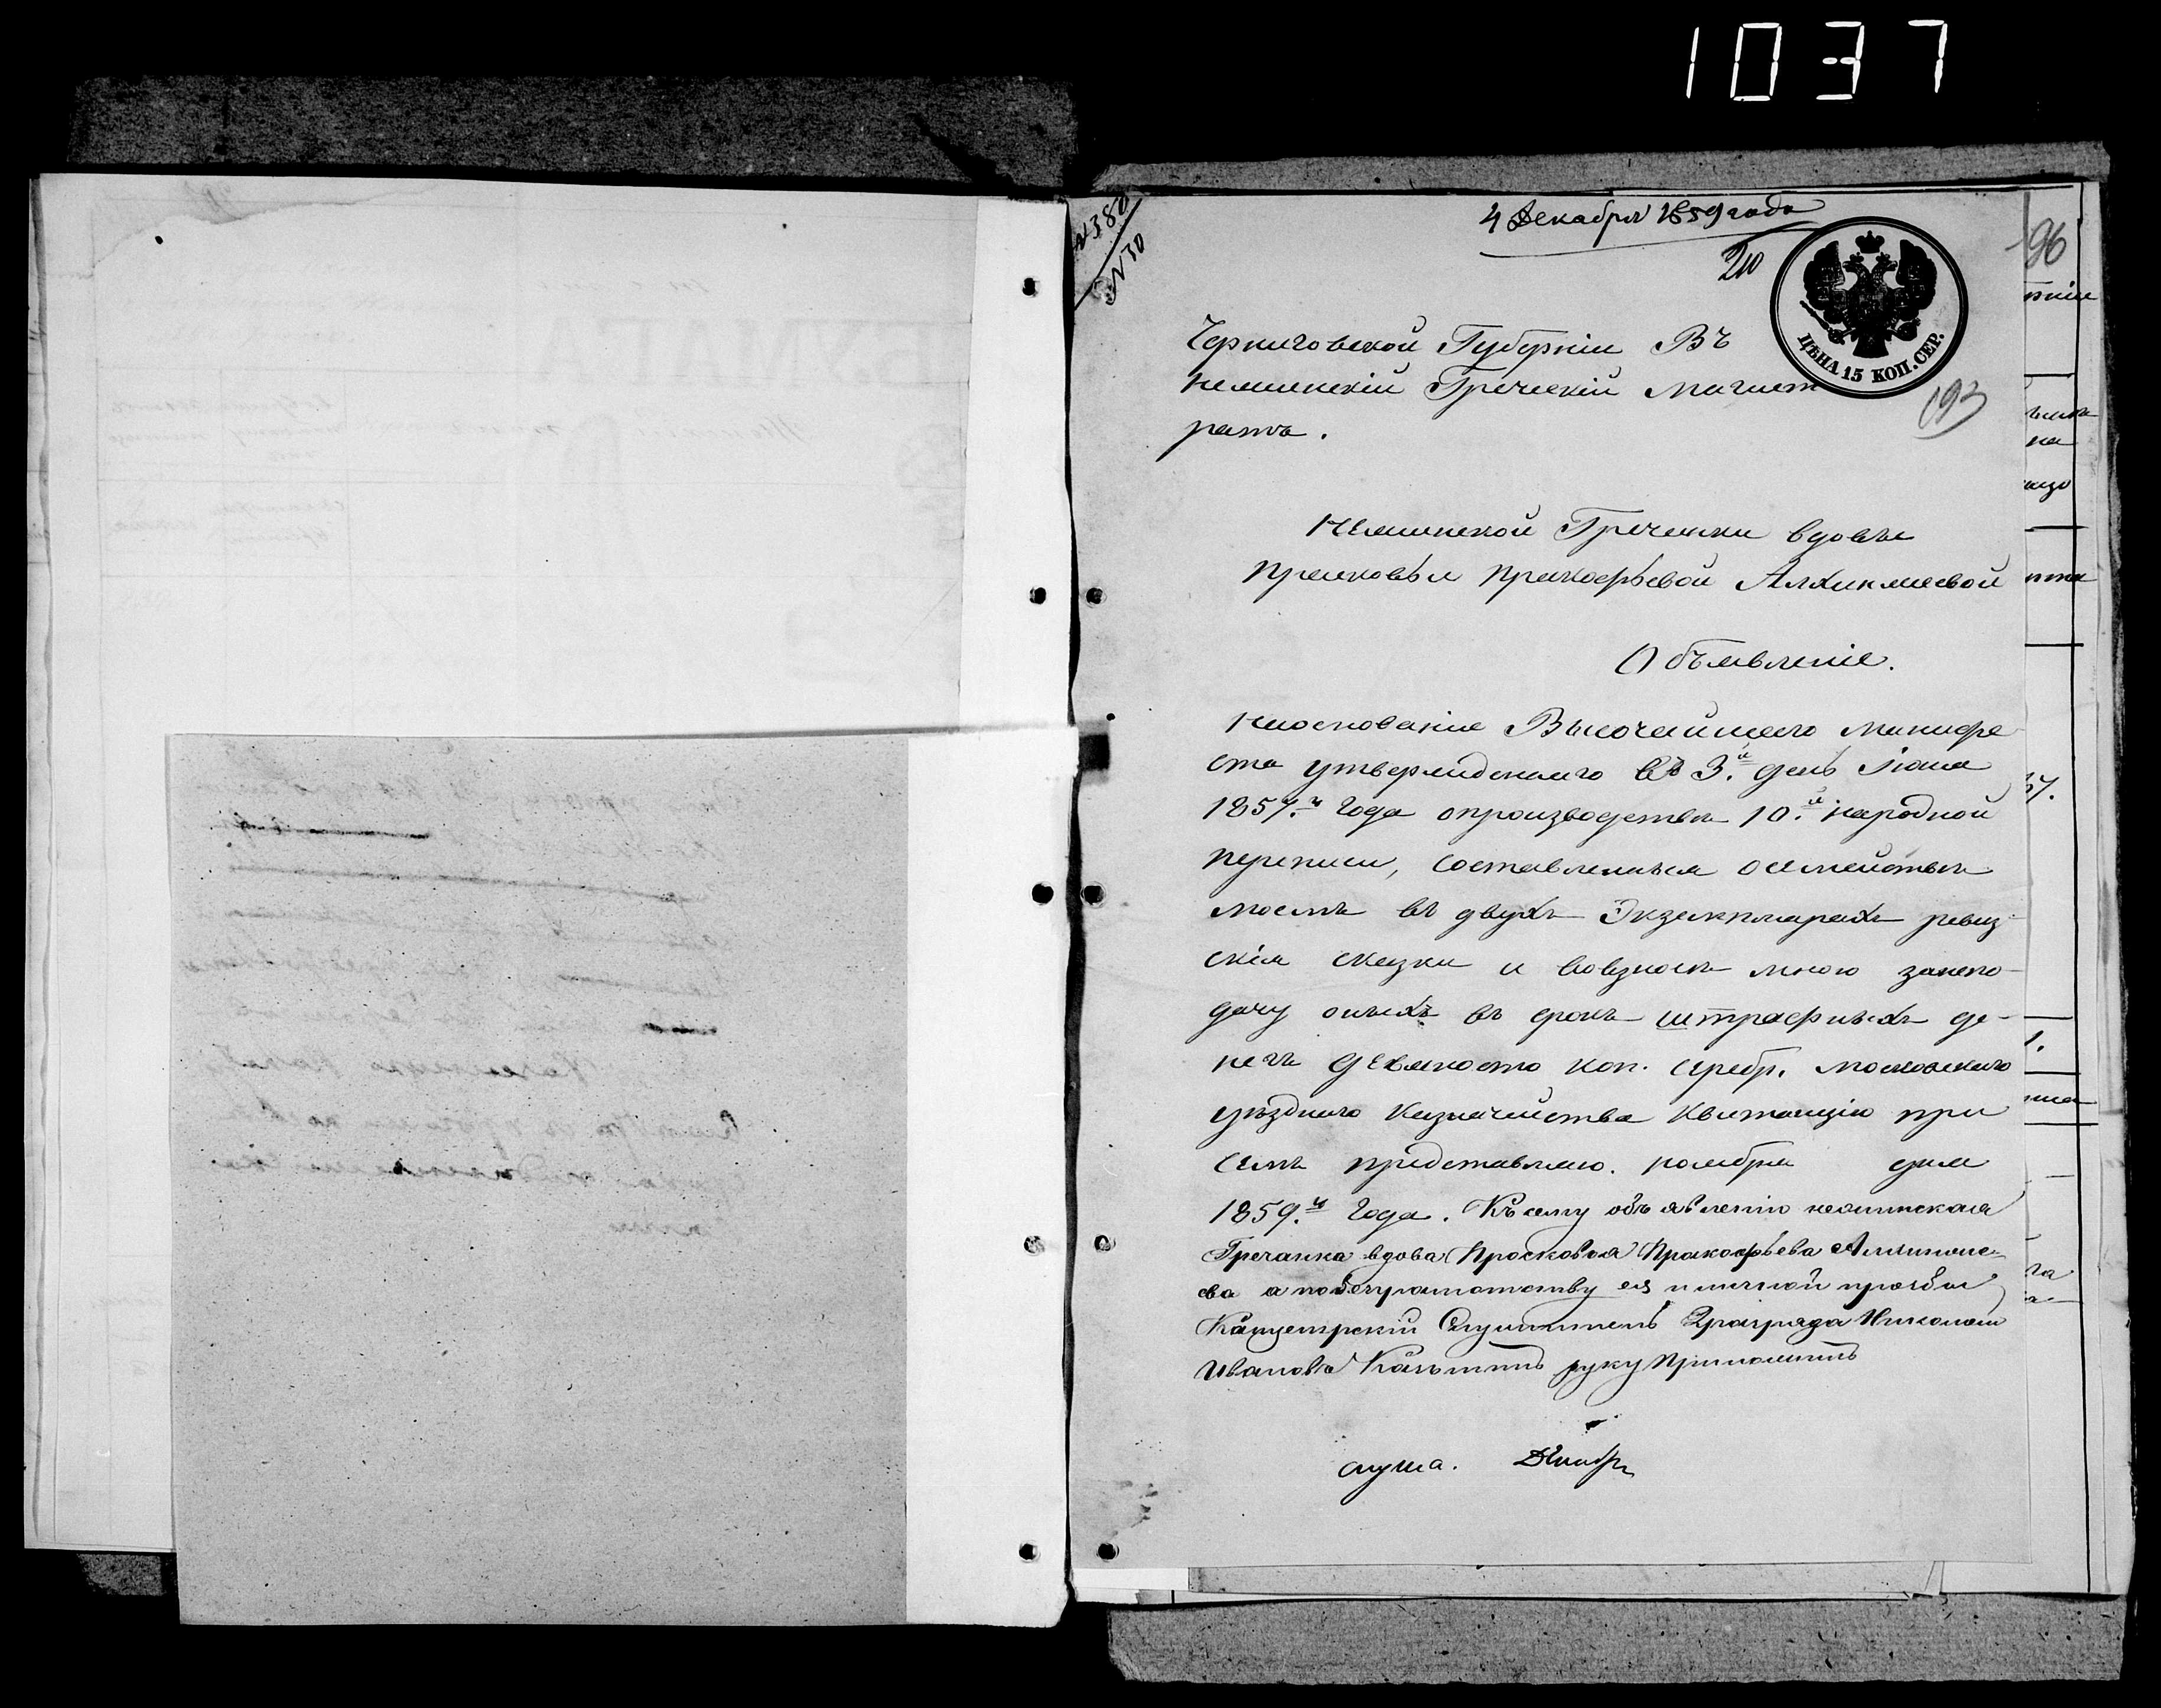 1037
4 Декабря 1859 года
№ 380
№ 30
210
96
ЦѢНА 15 КОП. СЕР.
193
Черниговской Губерніи Въ
Нежинскій Греческій Магист
ратъ.
Нежинской Гречанки вдовы
Прасковьи Прокофьевой Алхимисевой
Объявленіе.
Наоснованіи Высочайшаго Манифе
ста утвержденнаго въ 3.й день Іюня
1857.г Года опроизводствѣ 10.й народной
переписи, составленныя осемействѣ
моемъ въ двухъ Экземплярахъ ревиз
скія сказки и вовзносѣ мною занепо-
дачу оныхъ въ срокъ штрафныхъ де-
негъ девяносто коп. серебр. Московскаго
уѣзднаго Казначейства Квитанцію при
семъ представляю. ноября дня
1859.г Года. Къ сему объявленію нежинская
Гречанка вдова Прасковья Прокофьева
ева а по безграмотству ея и личной прозьбы
Канцелярскій Служитель 2 разряда Николай
Ивановъ руку Приложилъ
57.
1.
на